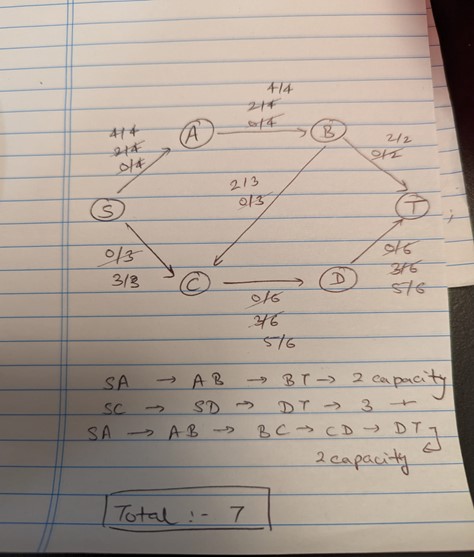 4/4
2/4
0/4
A
4/4
2/4
0/4
B
2/2
0/2
S
2/3
0/3
T
0/3
3/3
C
0/6
3/6
5/6
D
0/6
3/6
5/6
SA → AB → BT → 2 capacity
SC → SD → DT → 3 -
SA → AB → BC → CD → DT
2 capacity
Total :- 7